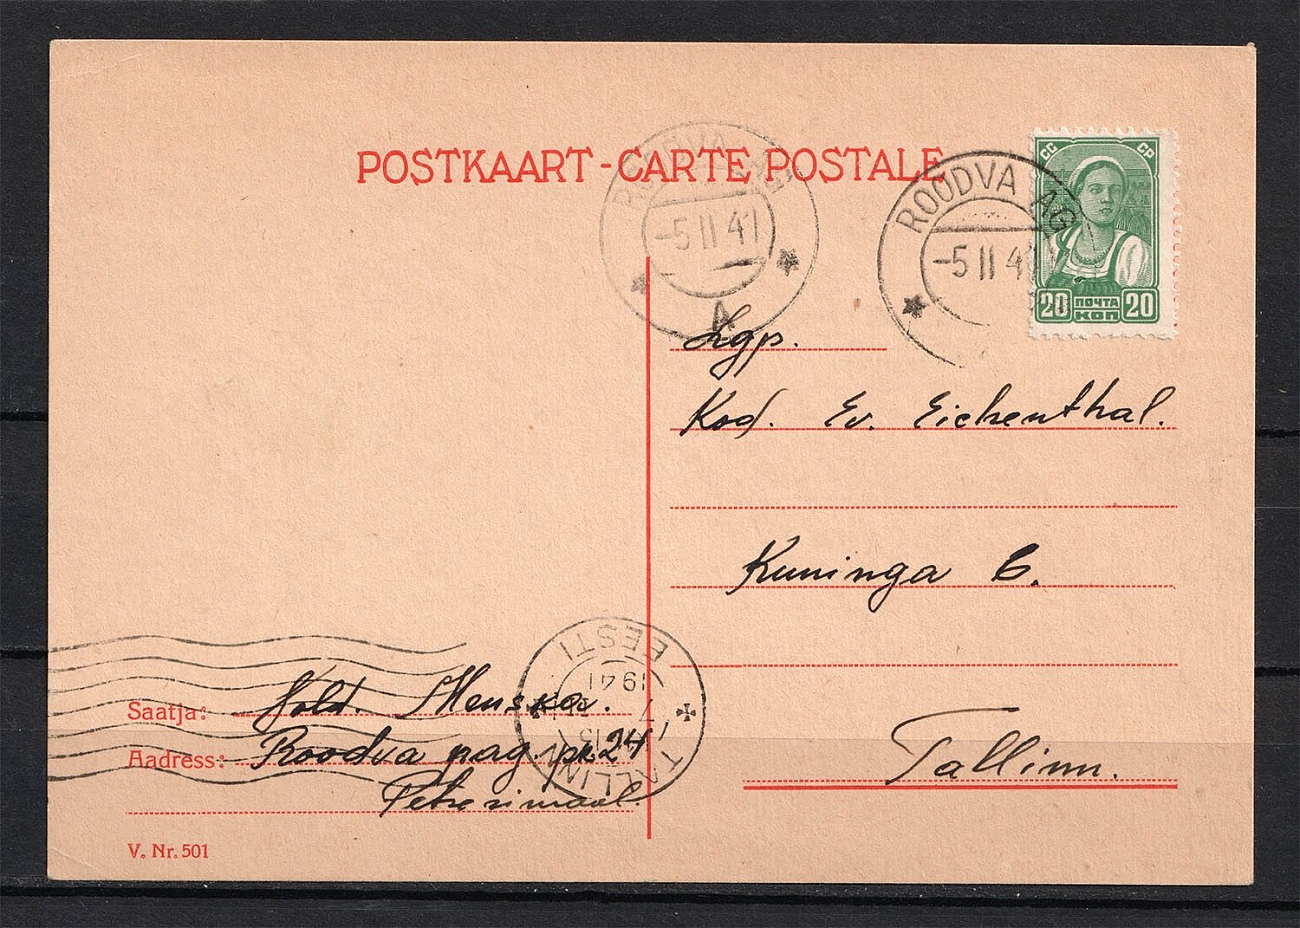 POSTKAART-CARTE POSTALE
ROODVA AG
-5 II 41
A
ROODVA AG
-5 II 41
СС СР
20 ПОЧТА 20
КОП
Lgp.
Kod. Ev. Eichenthal.
Kuninga 6.
Tallinn.
EESTI
1941
7
TALLINN
Saatja: Hold.
Aadress: Roodva pag. pk. 24
V. Nr. 501